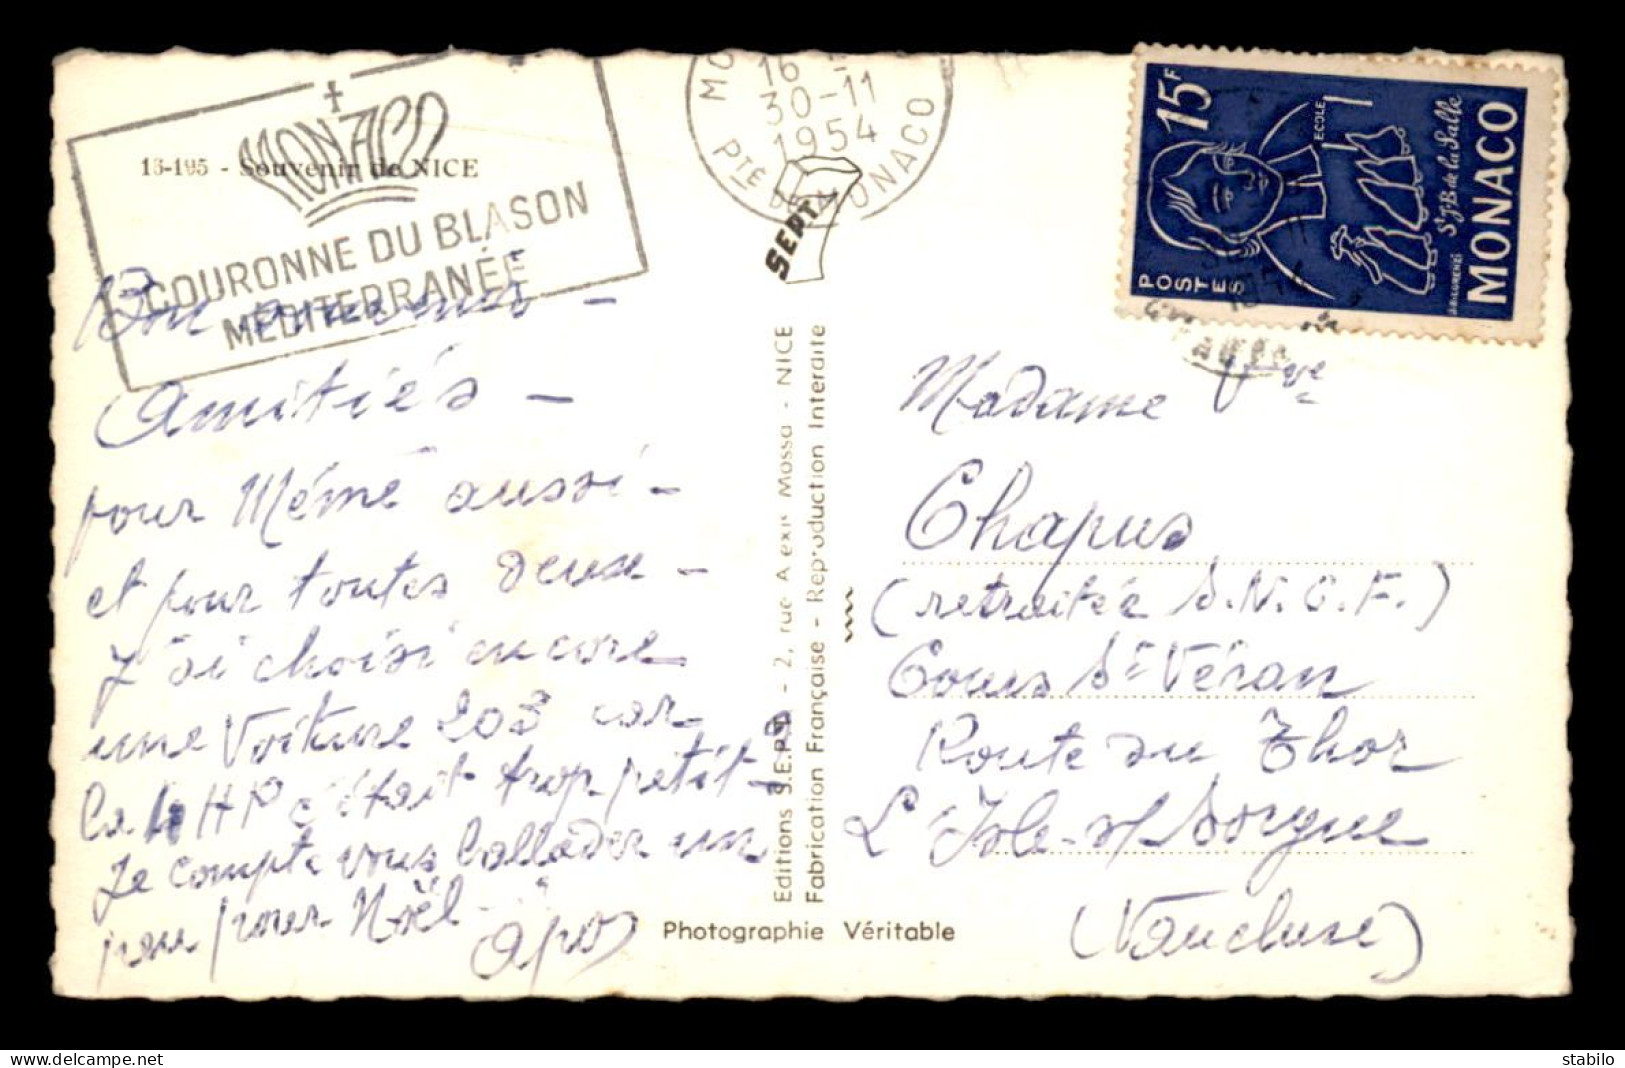 13-195 - Souvenir de NICE
MONACO
COURONNE DU BLASON
MÉDITERRANÉE
16
30-11
1954
Pté DE MONACO
15F
POSTES
ECOLE
St J-B de la Salle
MONACO
SEPT
Bon
Amitiés -
pour Mémé aussi -
et pour toutes deux -
J'ai choisi encore
une Voiture 203 car
la 4 HP c'était trop petit -
Je compte vous ballader un
peu pour Noël -
Madame Vve
Chapus
(retraitée S.N.C.F.)
Cours St Véran
Route du Thor
L'Isle-s/Sorgue
(Vaucluse)
Editions S.E.P.T. - 2, rue Alexis Mossa - NICE
Fabrication Française - Reproduction Interdite
Photographie Véritable
stabilo